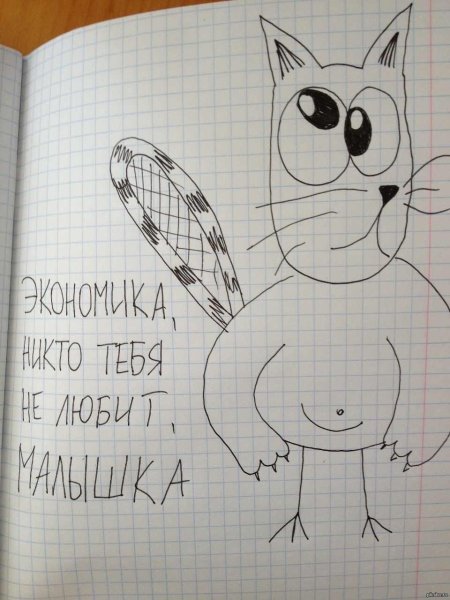 ЭКОНОМИКА,
НИКТО ТЕБЯ
НЕ ЛЮБИТ,
МАЛЫШКА